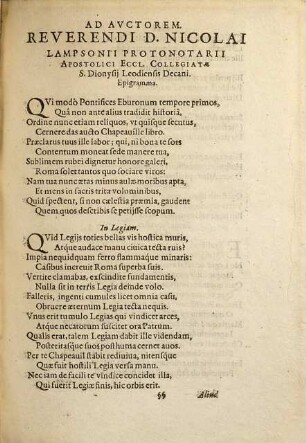 AD AVCTOREM.
REVERENDI D. NICOLAI
LAMPSONII PROTONOTARII
APOSTOLICI ECCL. COLLEGIATÆ
S. Dionysij Leodiensis Decani.
Epigramma.
QVi modò Pontifices Eburonum tempore primos,
Quâ non ante alius tradidit historiâ,
Ordine nunc etiam reliquos, vt quisque secutus,
Cernere das aucto Chapeauille libro.
Præclarus tuus ille labor; qui, ni bona te sors
Contentum moneat sede manere tua,
Sublimem rubei dignetur honore galeri,
Roma solet tantos quo sociare viros:
Nam tua nunc ætas minus aulæ moribus apta,
Et mens in sacris trita voluminibus,
Quid spectent, si non cælestia præmia, gaudent
Quem quos describis se petijsse scopum.
In Legiam.
QVid Legijs toties bellas vis hostica mutis,
Atque audace manu ciuica tecta ruis?
Impia nequidquam ferro flammaque minaris:
Casibus increscit Roma superba suis.
Vertite clamabat, exscindite fundamentis,
Nulla sit in terris Legia deinde volo.
Falleris, ingenti cumules licet omnia casu,
Obruere æternum Legia tecta nequis.
Vnus erit tumulo Legias qui vindicet arces,
Atque necatorum suscitet ora Patrum.
Qualis erat, talem Legiam dabit ille videndam,
Posteritasque suos posthuma cernet auos.
Per te Chapeauil stabit rediuiua, nitensque
Quæ fuit hostili Legia versa manu.
Nec iam de facili te vindice concidet illa,
Qui fuerit Legiæ finis, hic orbis erit.
§§ Aliud